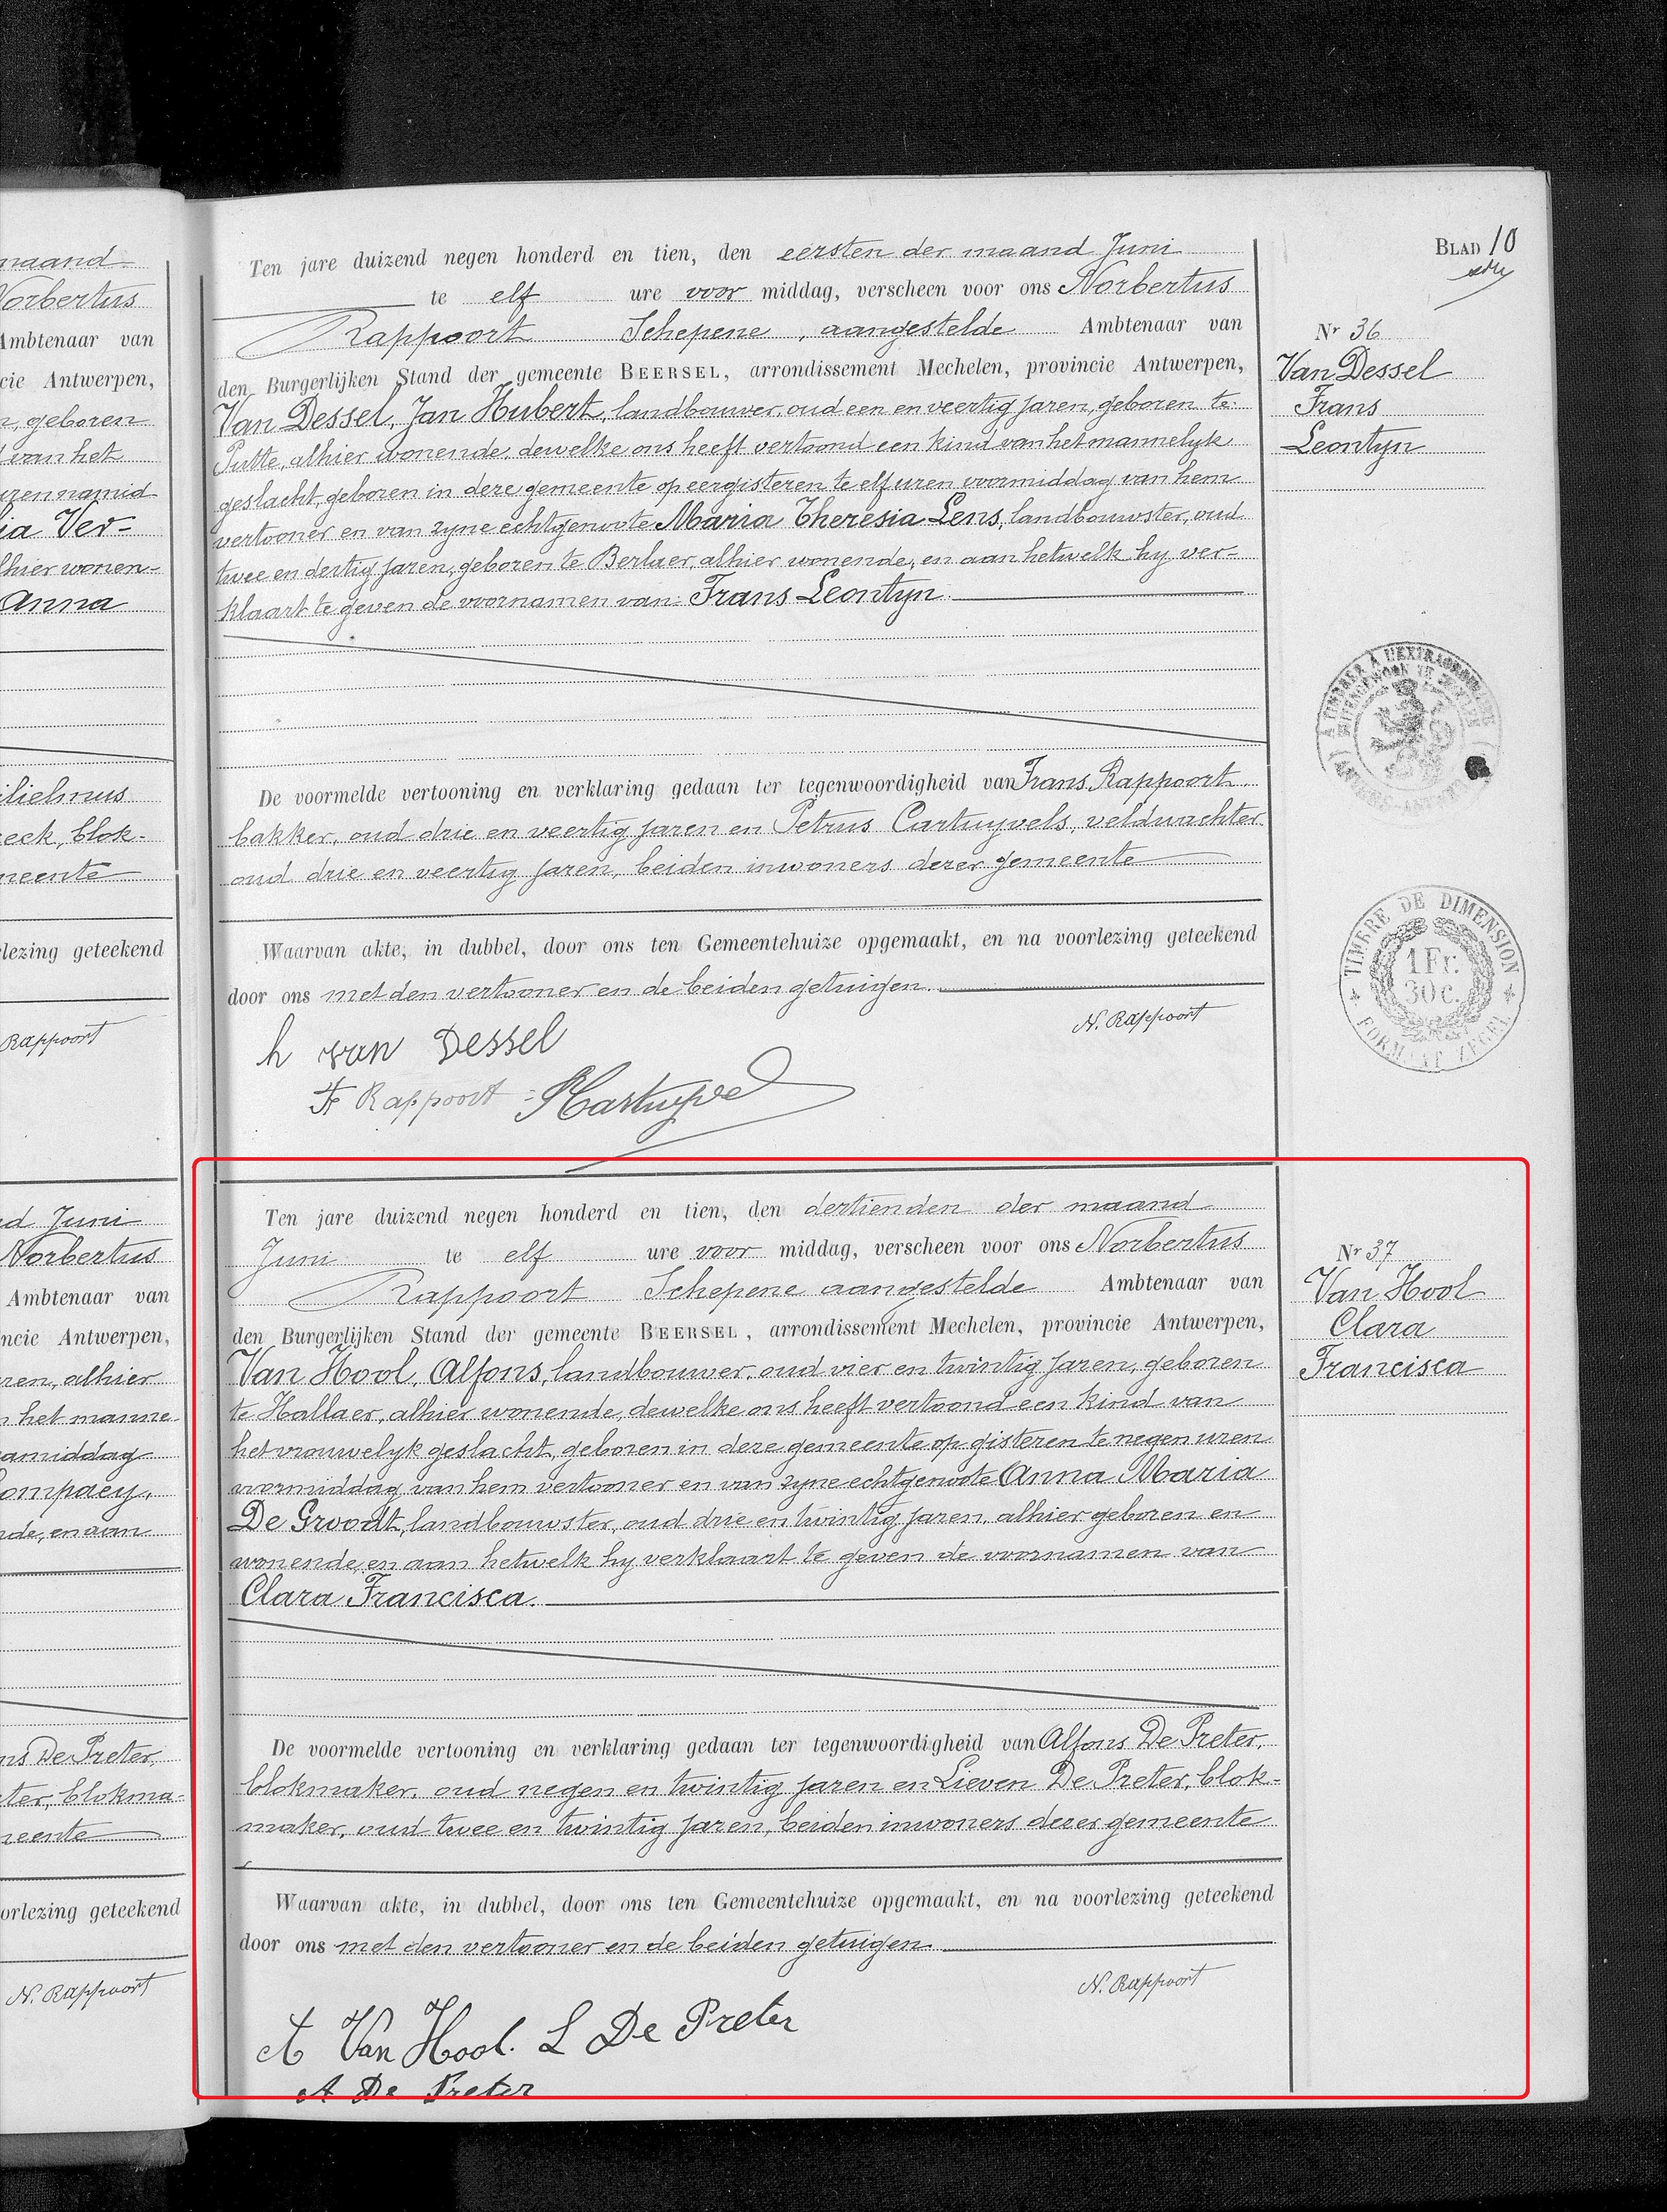 maand
Norbertus
Ambtenaar van
cie Antwerpen,
n, geboren
van het
uren namid
ia Ver-
lhier wonen-
Anna
ilielmus
eck, blok-
meente
lezing geteekend
Rappoort
d Juni
Norbertus
Ambtenaar van
ncie Antwerpen,
ren, alhier
n het manne
amiddag
ompaey,
de, en aan
ns De Preter,
ter, blokma-
eente
orlezing geteekend
N. Rappoort
BLAD 10
Ten jare duizend negen honderd en tien, den eersten der maand Juni
te elf ure voor middag, verscheen voor ons Norbertus
Rappoort Schepene, aangestelde Ambtenaar van
den Burgerlijken Stand der gemeente BEERSEL, arrondissement Mechelen, provincie Antwerpen,
Van Dessel, Jan Hubert, landbouwer, oud een en veertig jaren, geboren te
Putte, alhier wonende, dewelke ons heeft vertoond een kind van het mannelyk
geslacht, geboren in deze gemeente op eergisteren te elf uren voormiddag van hem
vertooner en van zyne echtgenoote Maria Theresia Lens, landbouwster, oud
twee en dertig jaren, geboren te Berlaer, alhier wonende, en aan hetwelk hy ver-
klaart te geven de voornamen van: Frans Leontyn.
De voormelde vertooning en verklaring gedaan ter tegenwoordigheid van Frans Rappoort
bakker, oud drie en veertig jaren en Petrus Cartuyvels, veldwachter
oud drie en veertig jaren, beiden inwoners dezer gemeente
Waarvan akte, in dubbel, door ons ten Gemeentehuize opgemaakt, en na voorlezing geteekend
door ons met den vertooner en de beiden getuigen.
N. Rappoort
h van Dessel
F Rappoort
Nr 36
Van Dessel
Frans
Leontyn
TIMBRE DE DIMENSION
1 Fr.
30 c.
FORMAAT ZEGEL
Ten jare duizend negen honderd en tien, den dertienden der maand
Juni te elf ure voor middag, verscheen voor ons Norbertus
Rappoort Schepene aangestelde Ambtenaar van
den Burgerlijken Stand der gemeente BEERSEL, arrondissement Mechelen, provincie Antwerpen,
Van Hool, Alfons, landbouwer, oud vier en twintig jaren, geboren
te Hallaer, alhier wonende, dewelke ons heeft vertoond een kind van
het vrouwelyk geslacht, geboren in deze gemeente op gisteren te negen uren
voormiddag van hem vertooner en van zyne echtgenoote Anna Maria
De Groodt, landbouwster, oud drie en twintig jaren, alhier geboren en
wonende, en aan hetwelk hy verklaart te geven de voornamen van
Clara Francisca.
De voormelde vertooning en verklaring gedaan ter tegenwoordigheid van Alfons De Preter,
blokmaker, oud negen en twintig jaren en Lieven De Preter, blok-
maker, oud twee en twintig jaren, beiden inwoners dezer gemeente
Waarvan akte, in dubbel, door ons ten Gemeentehuize opgemaakt, en na voorlezing geteekend
door ons met den vertooner en de beiden getuigen.
N. Rappoort
A Van Hool. L De Preter
A De Preter
Nr 37
Van Hool
Clara
Francisca